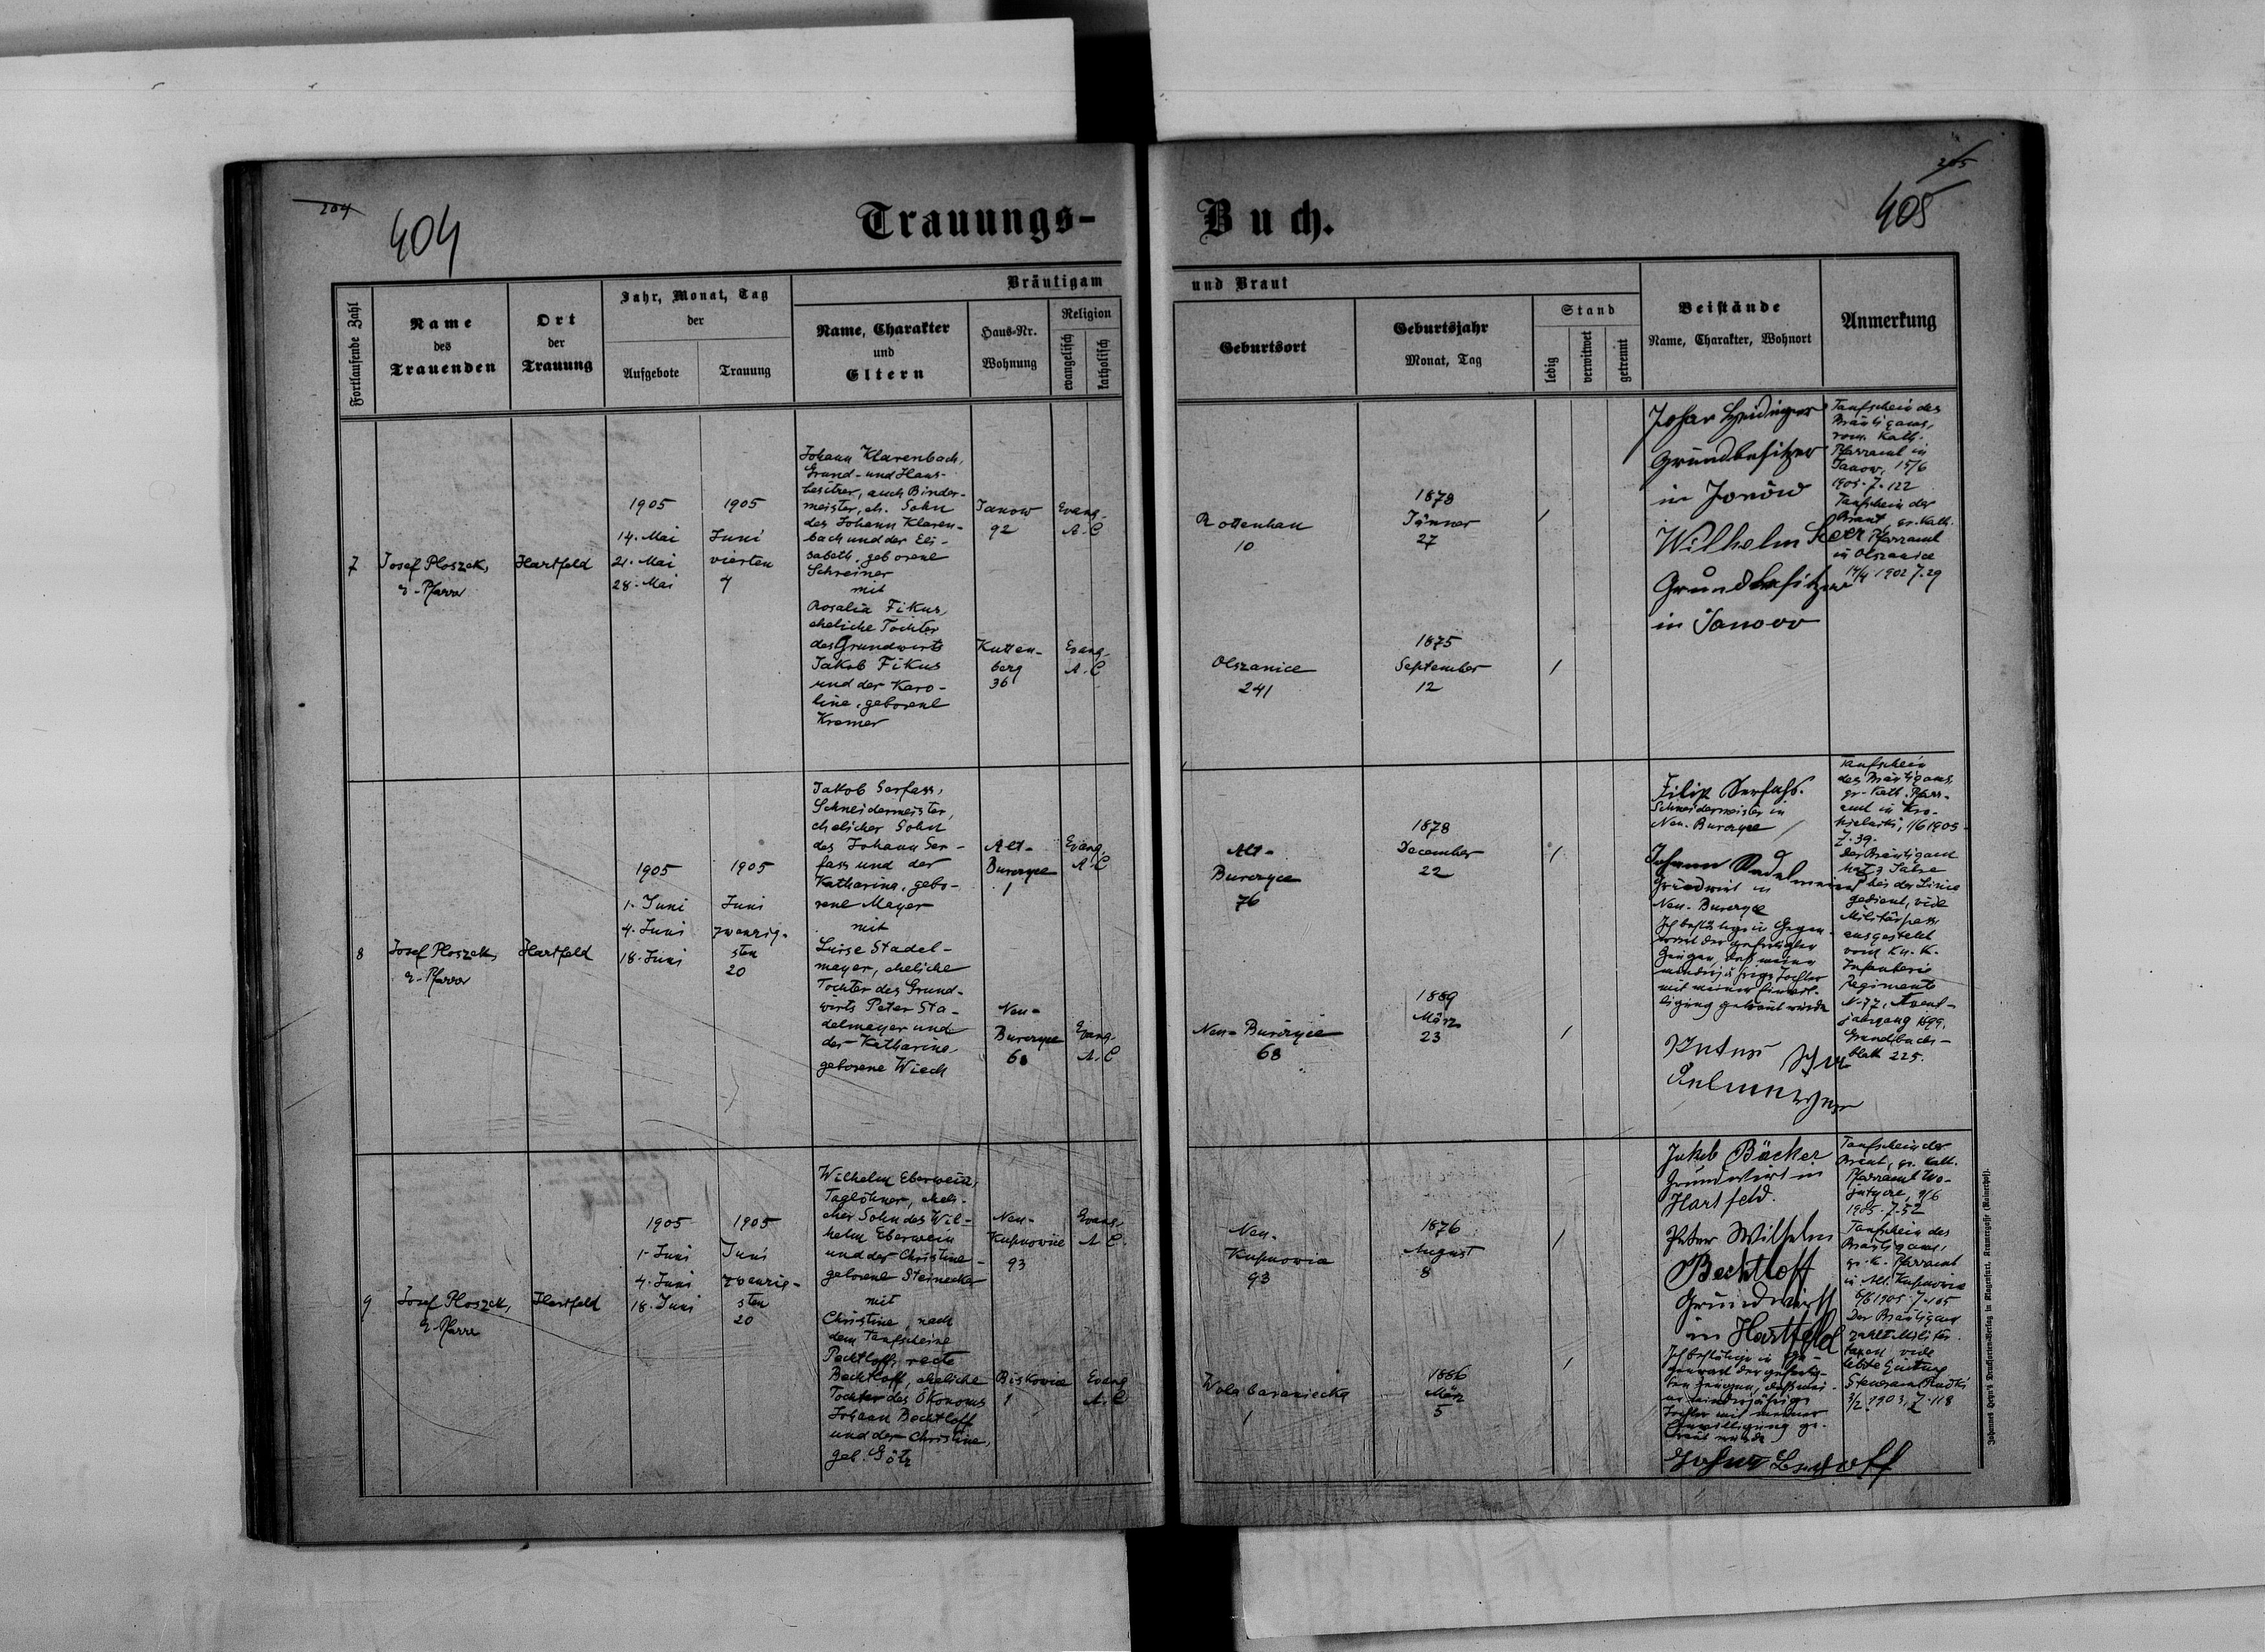 204
404
Trauungs-
Buch.
205
405
Fortlaufende Zahl
Name
des
Trauenden
Ort
der
Trauung
Jahr, Monat, Tag
der
Aufgebote
Trauung
Bräutigam
Name, Charakter
und
Eltern
Haus-Nr.
Wohnung
Religion
evangelisch
katholisch
und Braut
Geburtsort
Geburtsjahr
Monat, Tag
Stand
ledig
verwitwet
getrennt
Beistände
Name, Charakter, Wohnort
Anmerkung
7
Josef Ploszek,
Hartfeld
1905
14. Mai
21. Mai
28. Mai
1905
Juni
vierten
4
Johann Klarenbach,
Grund- und Haus-
besitzer, auch Binder-
meister, eh. Sohn
des Johann Klaren-
bach und der Eli-
sabeth, geborene
Schreiner
mit
Rosalia Fikus,
eheliche Tochter
des Grundwirts
Jakob Fikus
und der Karo-
line, geborene
Kremer
Janow
92
Evang.
A. C
Kutten-
berg
36
Evang.
A. C
Rottenhan
10
1878
Jänner
27
Olszanice
241
1875
September
12
Grundbesitzer
in Janów
Wilhelm
Grundbesitzer
in Janow
Taufschein des
Bräutigams,
rom. kath.
Pfarramt in
Janow, 15/6
1905. Z. 122
Taufschein der
Braut, gr. kath.
Pfarramt
in Olszanice
14/4 1902 Z. 29
8
Josef Ploszek,
Hartfeld
1905
1. Juni
4. Juni
18. Juni
1905
Juni
zwanzig-
sten
20
Jakob Serfass,
Schneidermeister,
ehelicher Sohn
des Johann Ser-
fass und der
Katharina, gebo-
rene Mayer
mit
Luise Stadel-
mayer, eheliche
Tochter des Grund-
wirts Peter Sta-
delmayer und
der Katharina
geborene Wiech
Alt-
Burczyce
1
Evang.
A. C
Neu-
Burczyce
Evang.
A. C
Alt-
Burczyce
76
1878
December
22
Neu-Burczyce
68
1889
März
23
Filip Serfass.
Schneidermeister in
Neu-Burczyce
Johann
Grundwirt in
Neu-Burczyce
Ich bestätige in Gegen-
wart der gefertigten
Zeugen, daß meine
minderjährige Tochter
mit meiner Einwil-
ligung getraut wurde
Taufschein
des Bräutigams,
gr.-kath. Pfarr-
amt in
1/6 1905
Z. 39.
Der Bräutigam
hat 3 Jahre
bei der Linie
gedient, vide
Militärpass,
ausgestellt
vom
Infanterie
Regimente
N. 77,
jahrgang 1899.
Grundbuchs-
blatt 225.
9
Josef Ploszek,
Hartfeld
1905
1. Juni
4. Juni
18. Juni
1905
Juni
zwanzig-
sten
20
Wilhelm Eberwein,
Taglöhner, eheli-
cher Sohn des Wil-
helm Eberwein
und der Christine
geborene Steinecker
mit
Christine, nach
dem Taufscheine
Pechtloff, recte
Bechtloff, eheliche
Tochter des Ökonoms
Johann Bechtloff
und der Christine,
geb. Götz
Neu-
Kupnowice
93
Evang.
A. C.
Biskowice
1
Evang
A. C
Neu-
Kupnovice
93
1876
August
8
Wola baraniecka
1
1886
März
5
Jakob Bäcker
Grundwirt in
Hartfeld.
Peter Wilhelm
Bechtloff
Grundwirth
in Hartfeld
Ich bestätige in Ge-
genwart der gefertig-
ten Zeugen, daß mei-
ne minderjährige
Tochter mit meiner
Einwilligung ge-
traut wurde
Taufschein der
Braut, gr. kath.
Pfarramt
1905. Z. 52
Taufschein des
Bräutigams,
gr. k. Pfarramt
in Alt. Kupnovice
6/6 1905. Z. 105
Der Bräutigam
zahlt Militär-
taxen, vide
letzte Quittung
Steueramt Rudki
3/2 1903, Z. 118
Johannes Heyn's Drucksorten-Verlag in Klagenfurt, Kramergasse (Rainerhof).